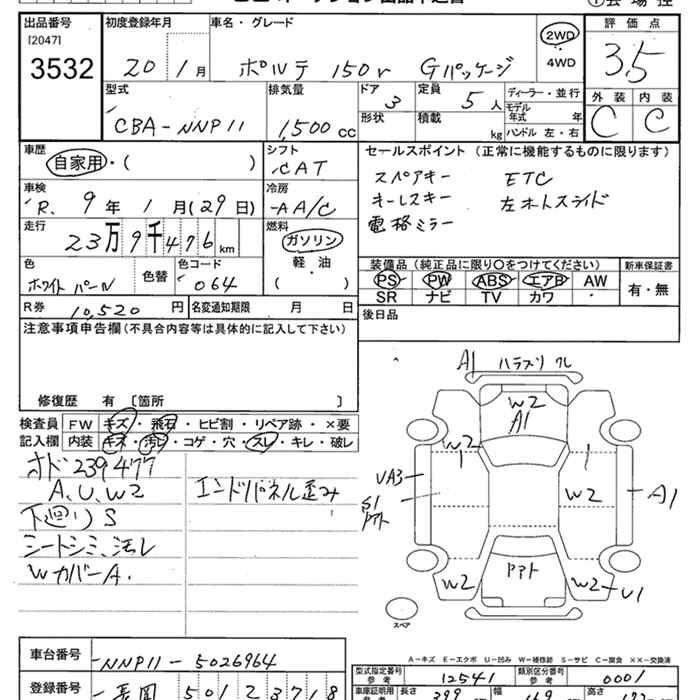 出品番号
[2047]
3532
初度登録年月
20 1月
車名・グレード
ポルテ 150r Gパッケージ
2WD
4WD
評価点
3.5
型式
CBA-NNP11
排気量
1,500 cc
ドア
3
形状
定員
5人
積載
kg
ディーラー・並行
モデル年式 年
ハンドル 左・右
外装 内装
C C
車歴
自家用・( )
シフト
CAT
車検
R. 9年 1月(29日)
冷房
AA/C
走行
23万9千476km
燃料
ガソリン
軽・油
( )
色
ホワイトパール
色替
色コード
064
R券
10,520円
名変通知期限 月 日
セールスポイント(正常に機能するものに限ります)
スペアキー ETC
キーレスキー 左オートスライド
電格ミラー
装備品(純正品に限り○をつけてください)
PS PW ABS エアB AW
SR ナビ TV カワ ・
新車保証書
有・無
後日品
注意事項申告欄(不具合内容等は具体的に記入して下さい)
修復歴 有〔箇所 〕
検査員記入欄
FW キズ・飛石・ヒビ割・リペア跡・×要
内装 キズ・汚れ・コゲ・穴・スレ・キレ・破レ
オド239477
A、U、W2
下廻りS
シートシミ、汚レ
WカバーA.
エンドパネル歪み
A1
W2
A1
W2
UA3
S1
W2
A1
W2
W2
U1
スペア
A-キズ E-エクボ U-凹み W-補修跡 S-サビ C-腐食 ××-交換済
車台番号
NNP11-5026964
登録番号
501
型式指定番号 参考
12541
類別区分番号 参考
0001
長さ
幅
高さ